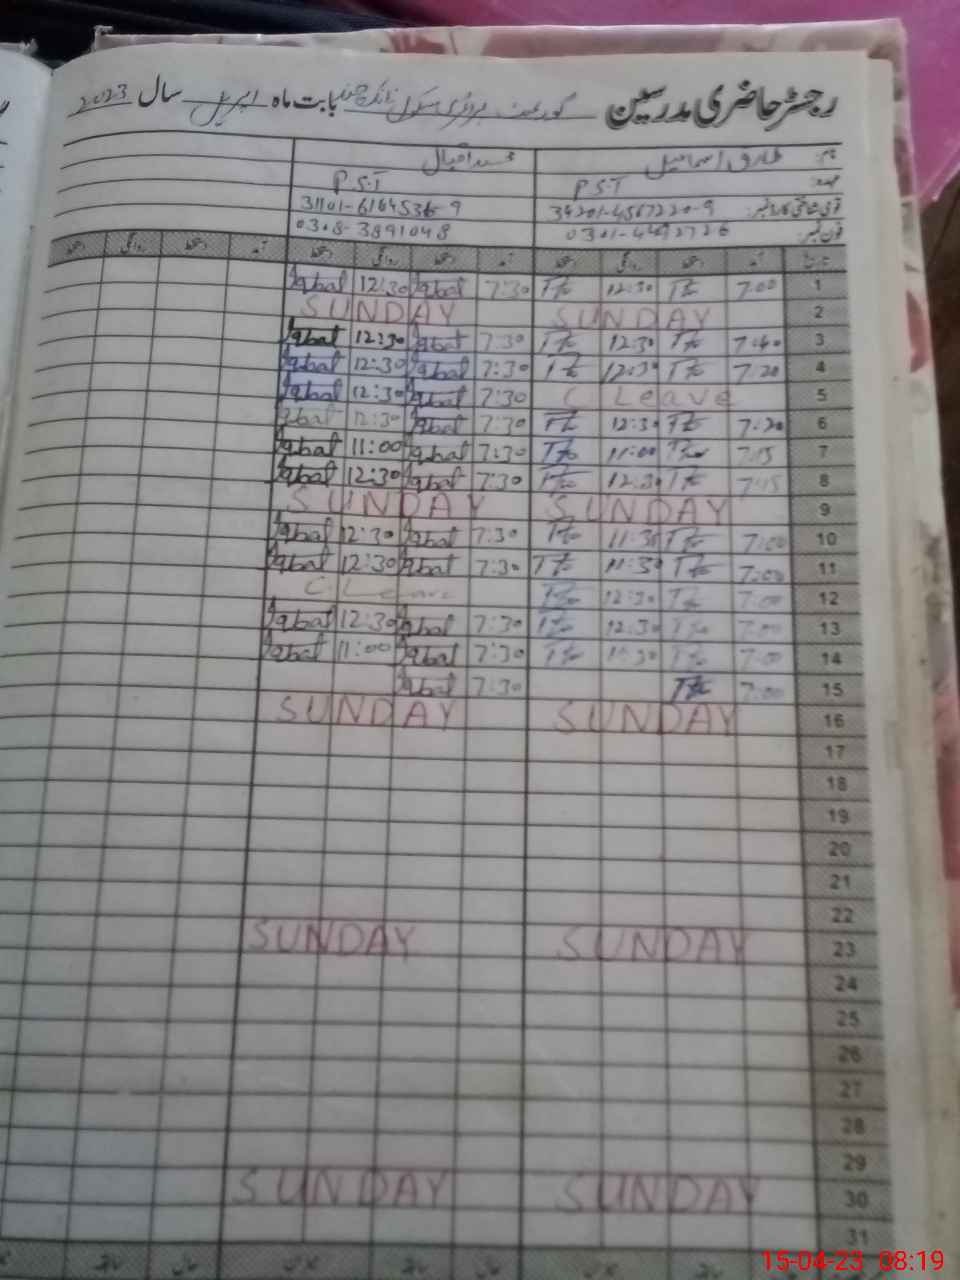 رجسٹر حاضری مدرسین گورنمنٹ پرائمری سکول بابت ماہ اپریل سال 2023
نام: طارق اسماعیل اقبال
عہدہ: P.S.T P.S.T
قومی شناختی کارڈ نمبر: 34201-4567220-9 31101-6164536-9
فون نمبر: 0301-4492726 0308-3891048
تاریخ آمد دستخط روانگی دستخط آمد دستخط روانگی دستخط آمد دستخط روانگی دستخط
1 7:00 12:30 7:30 Iqbal 12:30 Iqbal
2 SUNDAY SUNDAY
3 7:40 12:30 7:30 Iqbal 12:30 Iqbal
4 7:20 12:30 7:30 Iqbal 12:30 Iqbal
5 C Leave 7:30 Iqbal 12:30 Iqbal
6 7:20 12:30 7:30 Iqbal 12:30 Iqbal
7 7:15 11:00 7:30 Iqbal 11:00 Iqbal
8 7:15 12:30 7:30 Iqbal 12:30 Iqbal
9 SUNDAY SUNDAY
10 7:00 11:30 7:30 Iqbal 12:30 Iqbal
11 7:00 11:30 7:30 Iqbal 12:30 Iqbal
12 7:00 12:30 C. Leave
13 7:00 12:30 7:30 Iqbal 12:30 Iqbal
14 7:00 7:30 Iqbal 11:00 Iqbal
15 7:00 7:30 Iqbal
16 SUNDAY SUNDAY
17
18
19
20
21
22
23 SUNDAY SUNDAY
24
25
26
27
28
29
30 SUNDAY SUNDAY
31
15-04-23 08:19